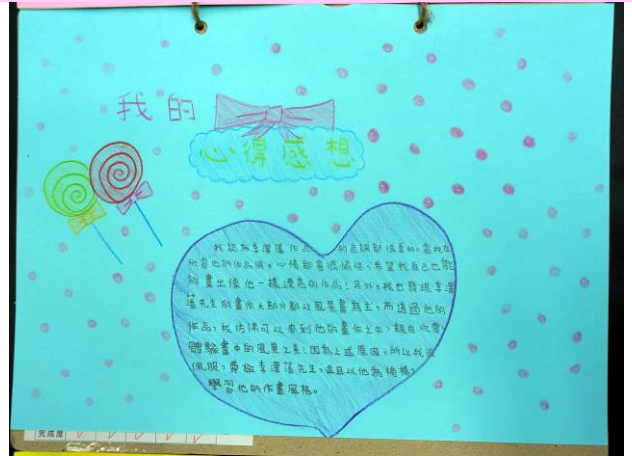 我的
心得感想
我認為李澤藩作品的色調都很柔和,當我在
欣賞他的作品時,心情都會很愉快,希望我自己也能
夠畫出像他一樣漂亮的作品!另外,我也發現李澤
藩先生的畫作大部分都以風景畫為主,而透過他的
作品,我彷彿可以來到他的畫作之中,親自欣賞
體驗畫中的風景之美!因為上述原因,所以我很
佩服、尊敬李澤藩先生,並且以他為榜樣,
學習他的作畫風格。
完成度